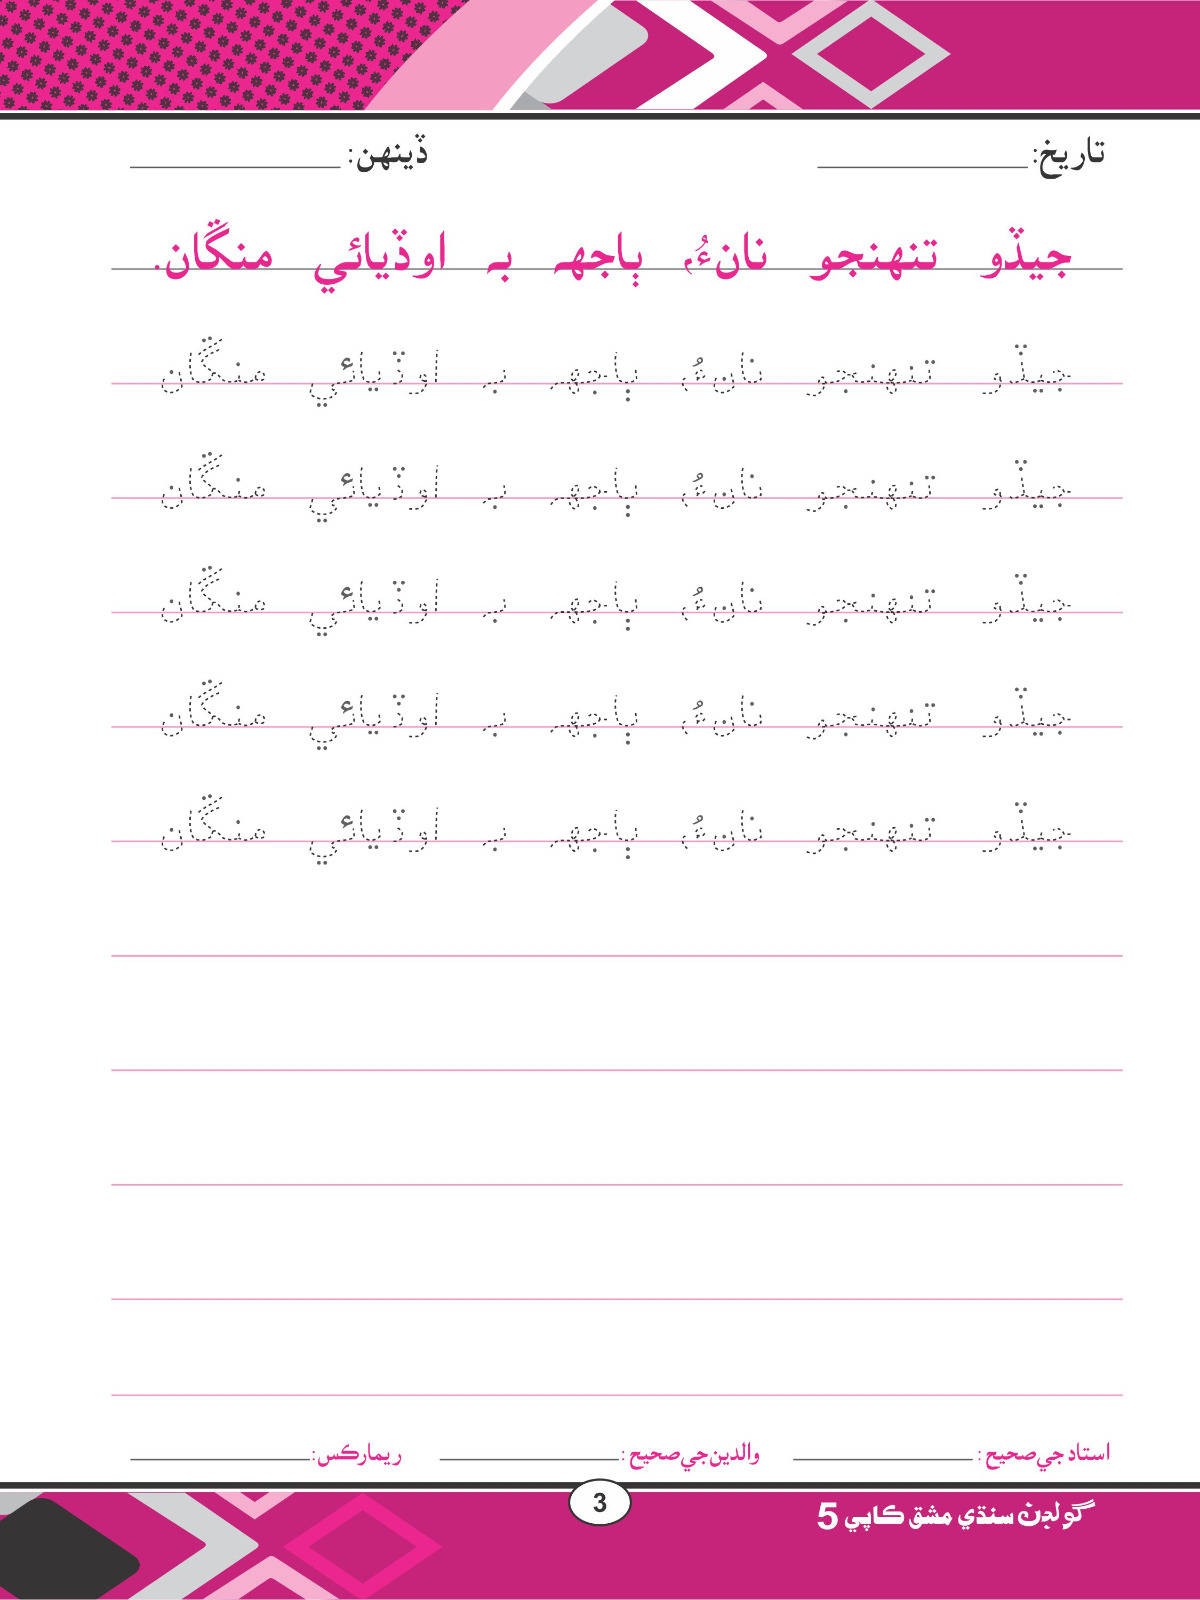 تاريخ: ڏينهن:
جيڏو تنهنجو نانءُ، ٻاجهہ بہ اوڏيائي منگان.
جيڏو تنهنجو نانءُ، ٻاجهہ بہ اوڏيائي منگان
جيڏو تنهنجو نانءُ، ٻاجهہ بہ اوڏيائي منگان
جيڏو تنهنجو نانءُ، ٻاجهہ بہ اوڏيائي منگان
جيڏو تنهنجو نانءُ، ٻاجهہ بہ اوڏيائي منگان
جيڏو تنهنجو نانءُ، ٻاجهہ بہ اوڏيائي منگان
استاد جي صحيح: والدين جي صحيح: ريمارڪس:
3
گولڊن سنڌي مشق ڪاپي 5